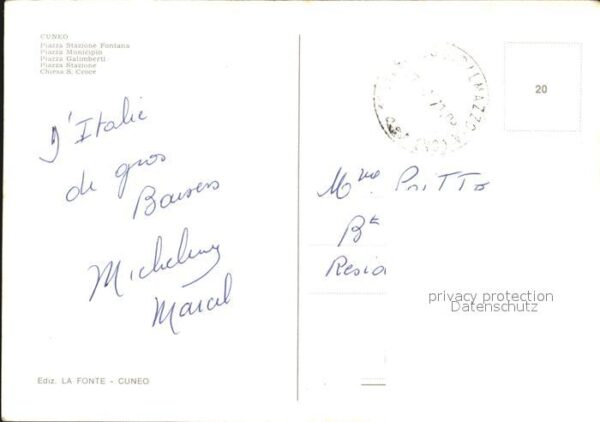 CUNEO
Piazza Stazione Fontana
Piazza Municipio
Piazza Galimberti
Piazza Stazione
Chiesa S. Croce
D'Italie
de gros
Baisers
Micheline
Marcel
Ediz. LA FONTE - CUNEO
DALMAZZO
20
Mme
Bt
Resid
privacy protection
Datenschutz